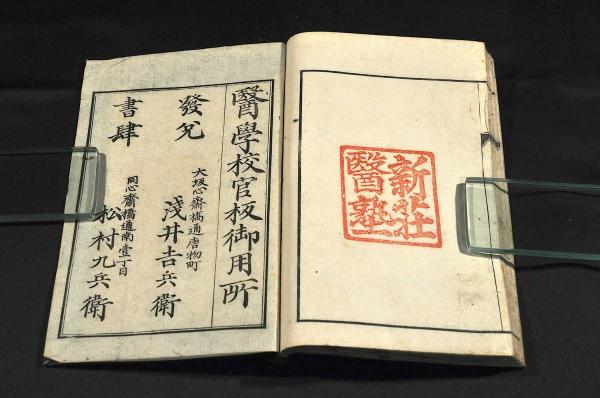 新荘
醫塾
醫學校官板御用所
發兌
書肆
大坂心齋橋通唐物町
淺井吉兵衛
同心齋橋通南壹丁目
松村九兵衛